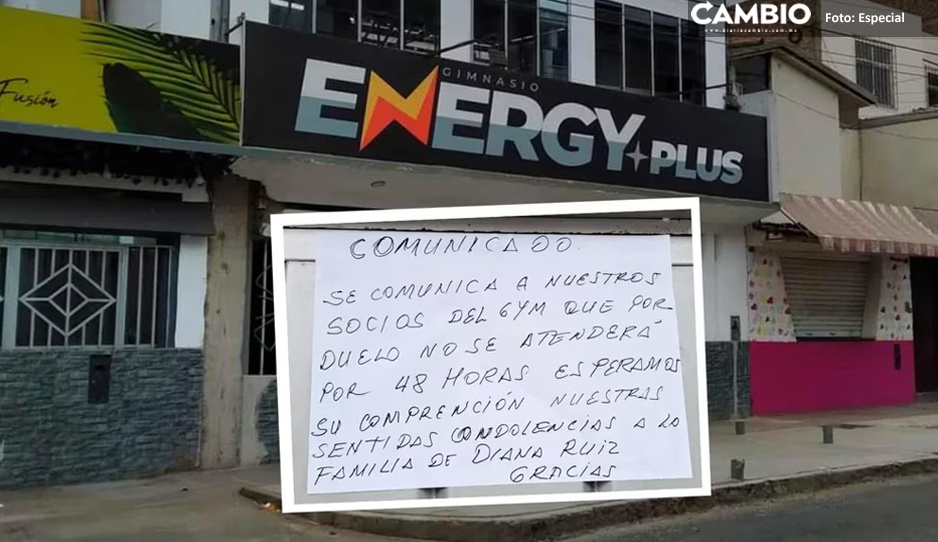 CAMBIO
www.diariocambio.com.mx
Foto: Especial
Fusión
GIMNASIO
ENERGY+PLUS
COMUNICADO.
SE COMUNICA A NUESTROS
SOCIOS DEL GYM QUE POR
DUELO NO SE ATENDERÁ
POR 48 HORAS ESPERAMOS
SU COMPRENCIÓN NUESTRAS
SENTIDAS CONDOLENCIAS A LA
FAMILIA DE DIANA RUIZ
GRACIAS